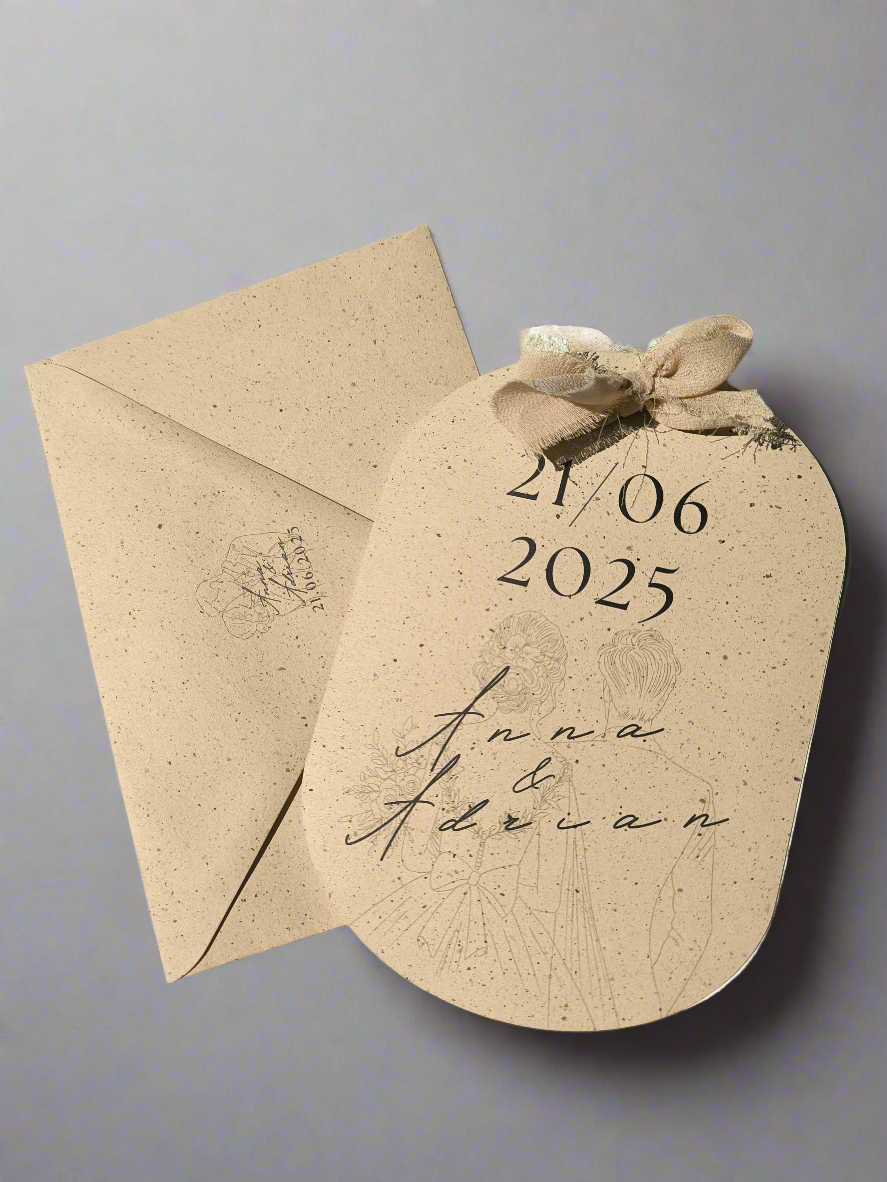 21/06
2025
Anna
&
Adrian
Anna
&
Adrian
21/06/2025